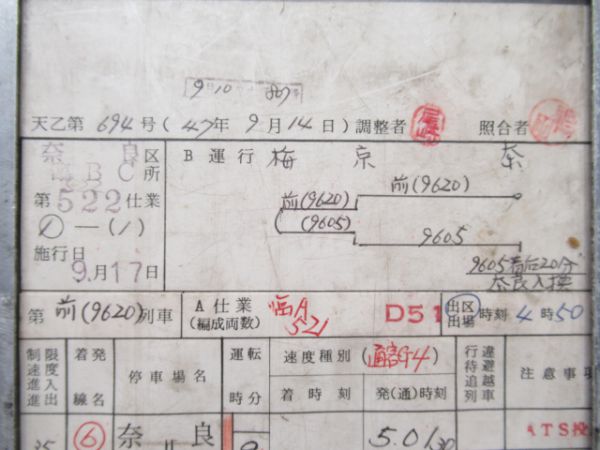 9 10
天乙第 694 号 ( 47年 9月14日 ) 調整者 尾崎 照合者
奈良区
BC所
第522仕業
①―(1)
施行日
9月17日
B 運行 梅 京 奈
前(9620) 前(9620)
(9605) 9605
9605着后20分
奈良入換
第 前(9620)列車
A 仕業
(編成両数)
臨A
521
D51
出区
出場
時刻 4時50
制限速度
進入進出
着発線名
停車場名
運転時分
速度種別(通客G4)
着時刻 発(通)時刻
行違
待避
追越
列車
注意事項
35 ⑥ 奈良 5.01 30 ATS投